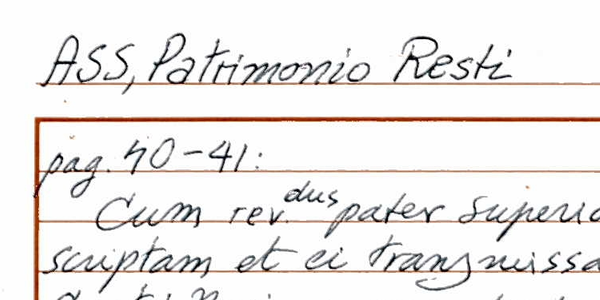 ASS, Patrimonio Resti
pag. 40-41:
Cum rev.dus pater superio
scriptam et ei transmissa